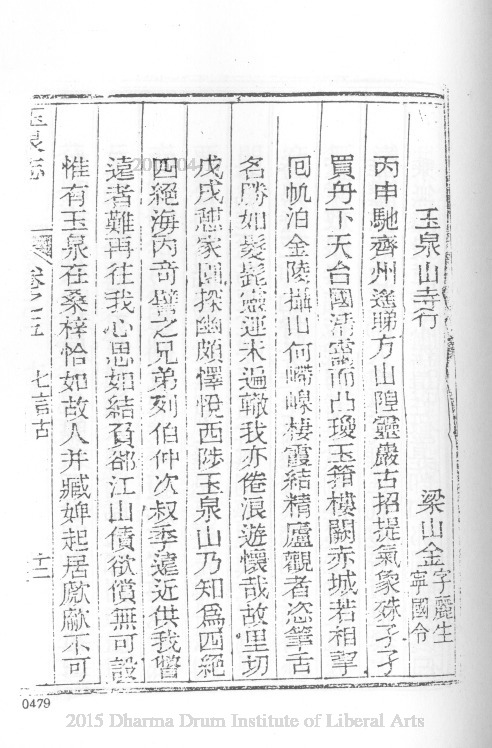 玉泉山寺行
梁山金字麗生寧國令
丙申馳齊州遙睇方山隍靈巖古招提氣象殊孑孑
買舟下天台國清靈而凸瓊玉箱樓闕赤城若相挈
囘帆泊金陵攝山何嶆嵲棲霞結精廬觀者恣筆舌
名勝如髮髭靈運未遍轍我亦倦浪遊懷哉故里切
戊戌憩家園探幽頗懌悅西陟玉泉山乃知爲四絕
四絕海內奇譬之兄弟列伯仲次叔季遠近供我
遠者難再往我心思如結負郤江山債欲償無可設
惟有玉泉在桑梓恰如故人并臧婢起居歔歔不可
玉泉志
卷之五 七言古 十二
2015 04
0479
2015 Dharma Drum Institute of Liberal Arts